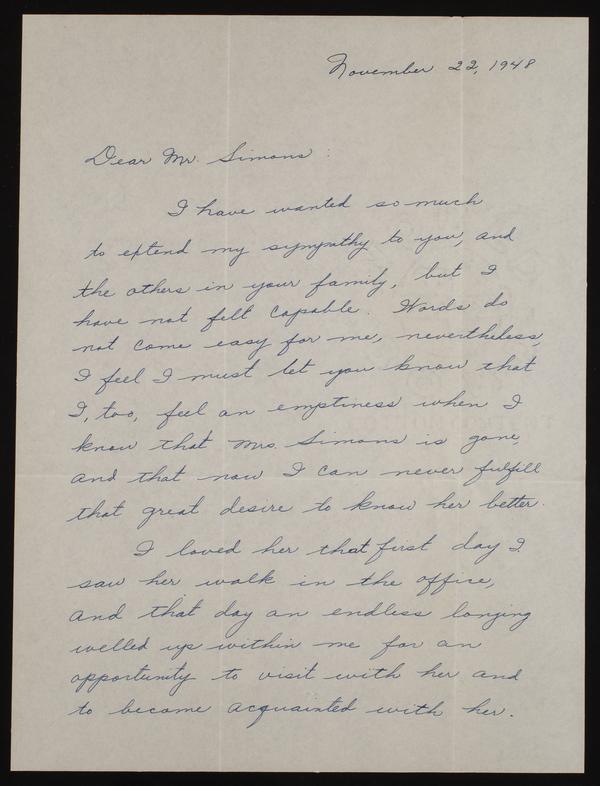 November 22, 1948
Dear Mr. Simons:
I have wanted so much
to extend my sympathy to you, and
the others in your family, but I
have not felt capable. Words do
not come easy for me, nevertheless,
I feel I must let you know that
I, too, feel an emptiness when I
know that Mrs. Simons is gone,
and that now I can never fulfill
that great desire to know her better.
I loved her that first day I
saw her walk in the office,
and that day an endless longing
welled up within me for an
opportunity to visit with her and
to become acquainted with her.